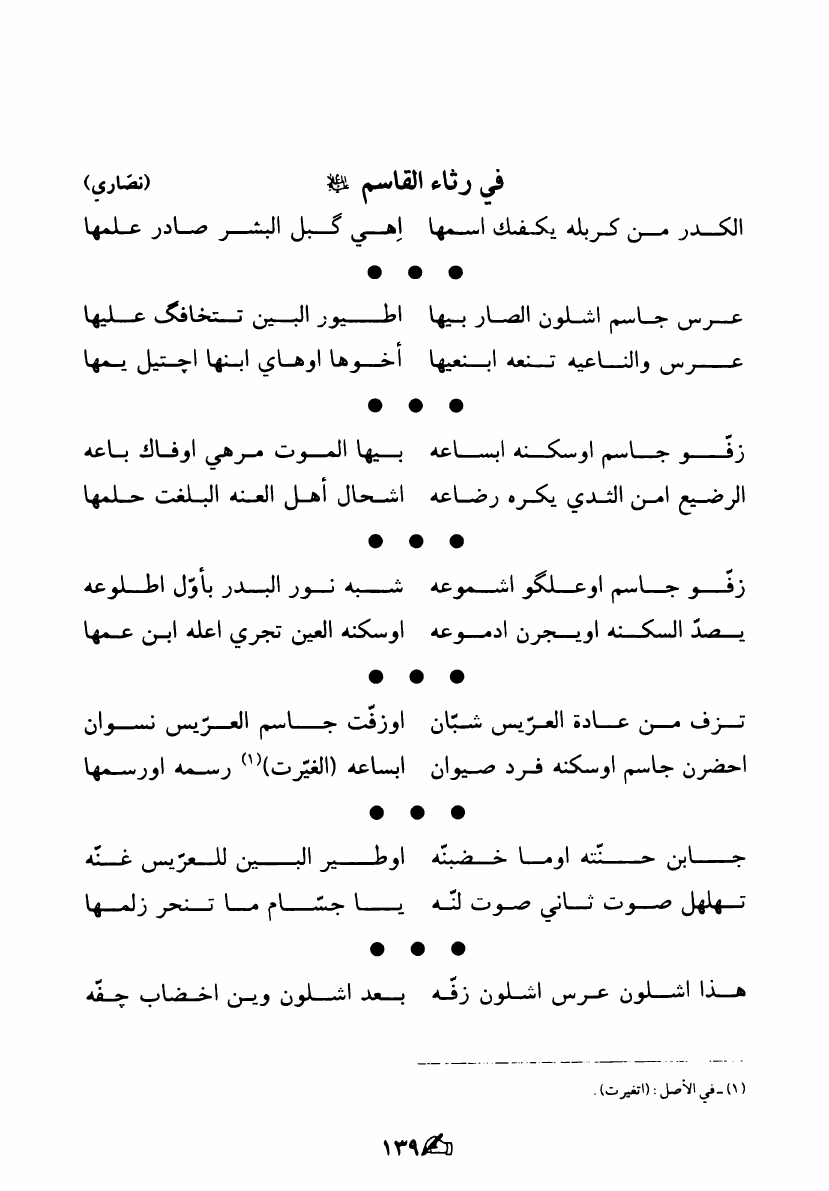 في رثاء القاسم ﷺ (نصّاري)
الكدر من كربله يكفيك اسمها إهي گبل البشر صادر علمها
● ● ●
عرس جاسم اشلون الصار بيها اطيور البين تتخافگ عليها
عرس والناعيه تنعه ابنعيها أخوها اوهاي ابنها اچتيل يمها
● ● ●
زفّو جاسم اوسكنه ابساعه بيها الموت مرهي اوفاك باعه
الرضيع امن الثدي يكره رضاعه اشحال أهل العنه البلغت حلمها
● ● ●
زفّو جاسم اوعلگو اشموعه شبه نور البدر بأوّل اطلوعه
يصدّ السكنه اويجرن ادموعه اوسكنه العين تجري اعله ابن عمها
● ● ●
تزف من عادة العرّيس شبّان اوزفّت جاسم العرّيس نسوان
احضرن جاسم اوسكنه فرد صيوان ابساعه (الغيّرت)(١) رسمه اورسمها
● ● ●
جابن حنّته اوما خضبنّه اوطير البين للعرّيس غنّه
تهلهل صوت ثاني صوت لنّه يا جسّام ما تنحر زلمها
● ● ●
هذا اشلون عرس اشلون زفّه بعد اشلون وين اخضاب چفّه
(١) ـ في الأصل : (اتغيرت) .
١٣٩